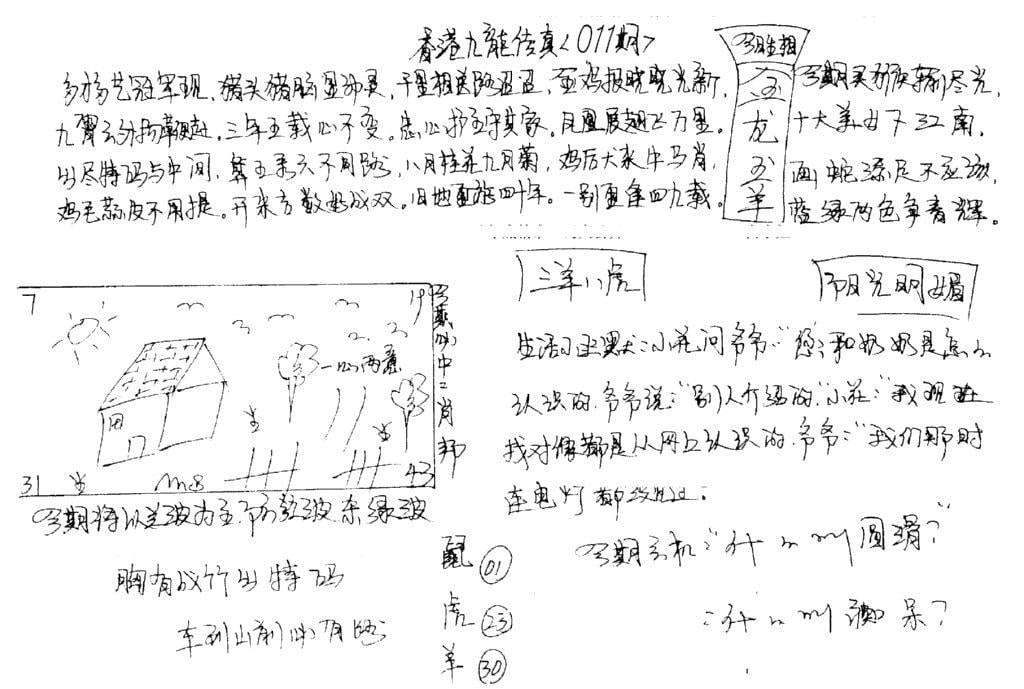 香港九龍传真<011期>
多才多艺冠军现，猪头猪脑显神灵，千里相送路迢迢，金鸡报晓晓光新，
九霄云外，三年五载心不变。忠心护主守其家，凤凰展翅飞万里。
出尽特码与中间，不同路，八月桂花九月菊，鸡后犬来牛马肖，
鸡毛蒜皮不用提。开来方数成双。旧地重游四十年。一别重逢四九载。
今期
龙
羊
今期买
十大美女下江南，
画蛇添足不应该，
蓝绿两色争青辉。
三羊八虎
阳光明媚
7
19
一心两意
31
m8
43
今期必中二肖
今期特以蓝波为主，防红波，杀绿波
胸有成竹出特码
车到山前必有路
鼠 01
虎 23
羊 30
生活幽默：小花问爷爷“您和奶奶是怎么
认识的，爷爷说：“别人介绍的，小花：“我现在
找对像都是从网上认识的，爷爷：“我们那时
连电灯都没见过：
今期玄机：“什么叫圆滑？”
：什么叫呆？